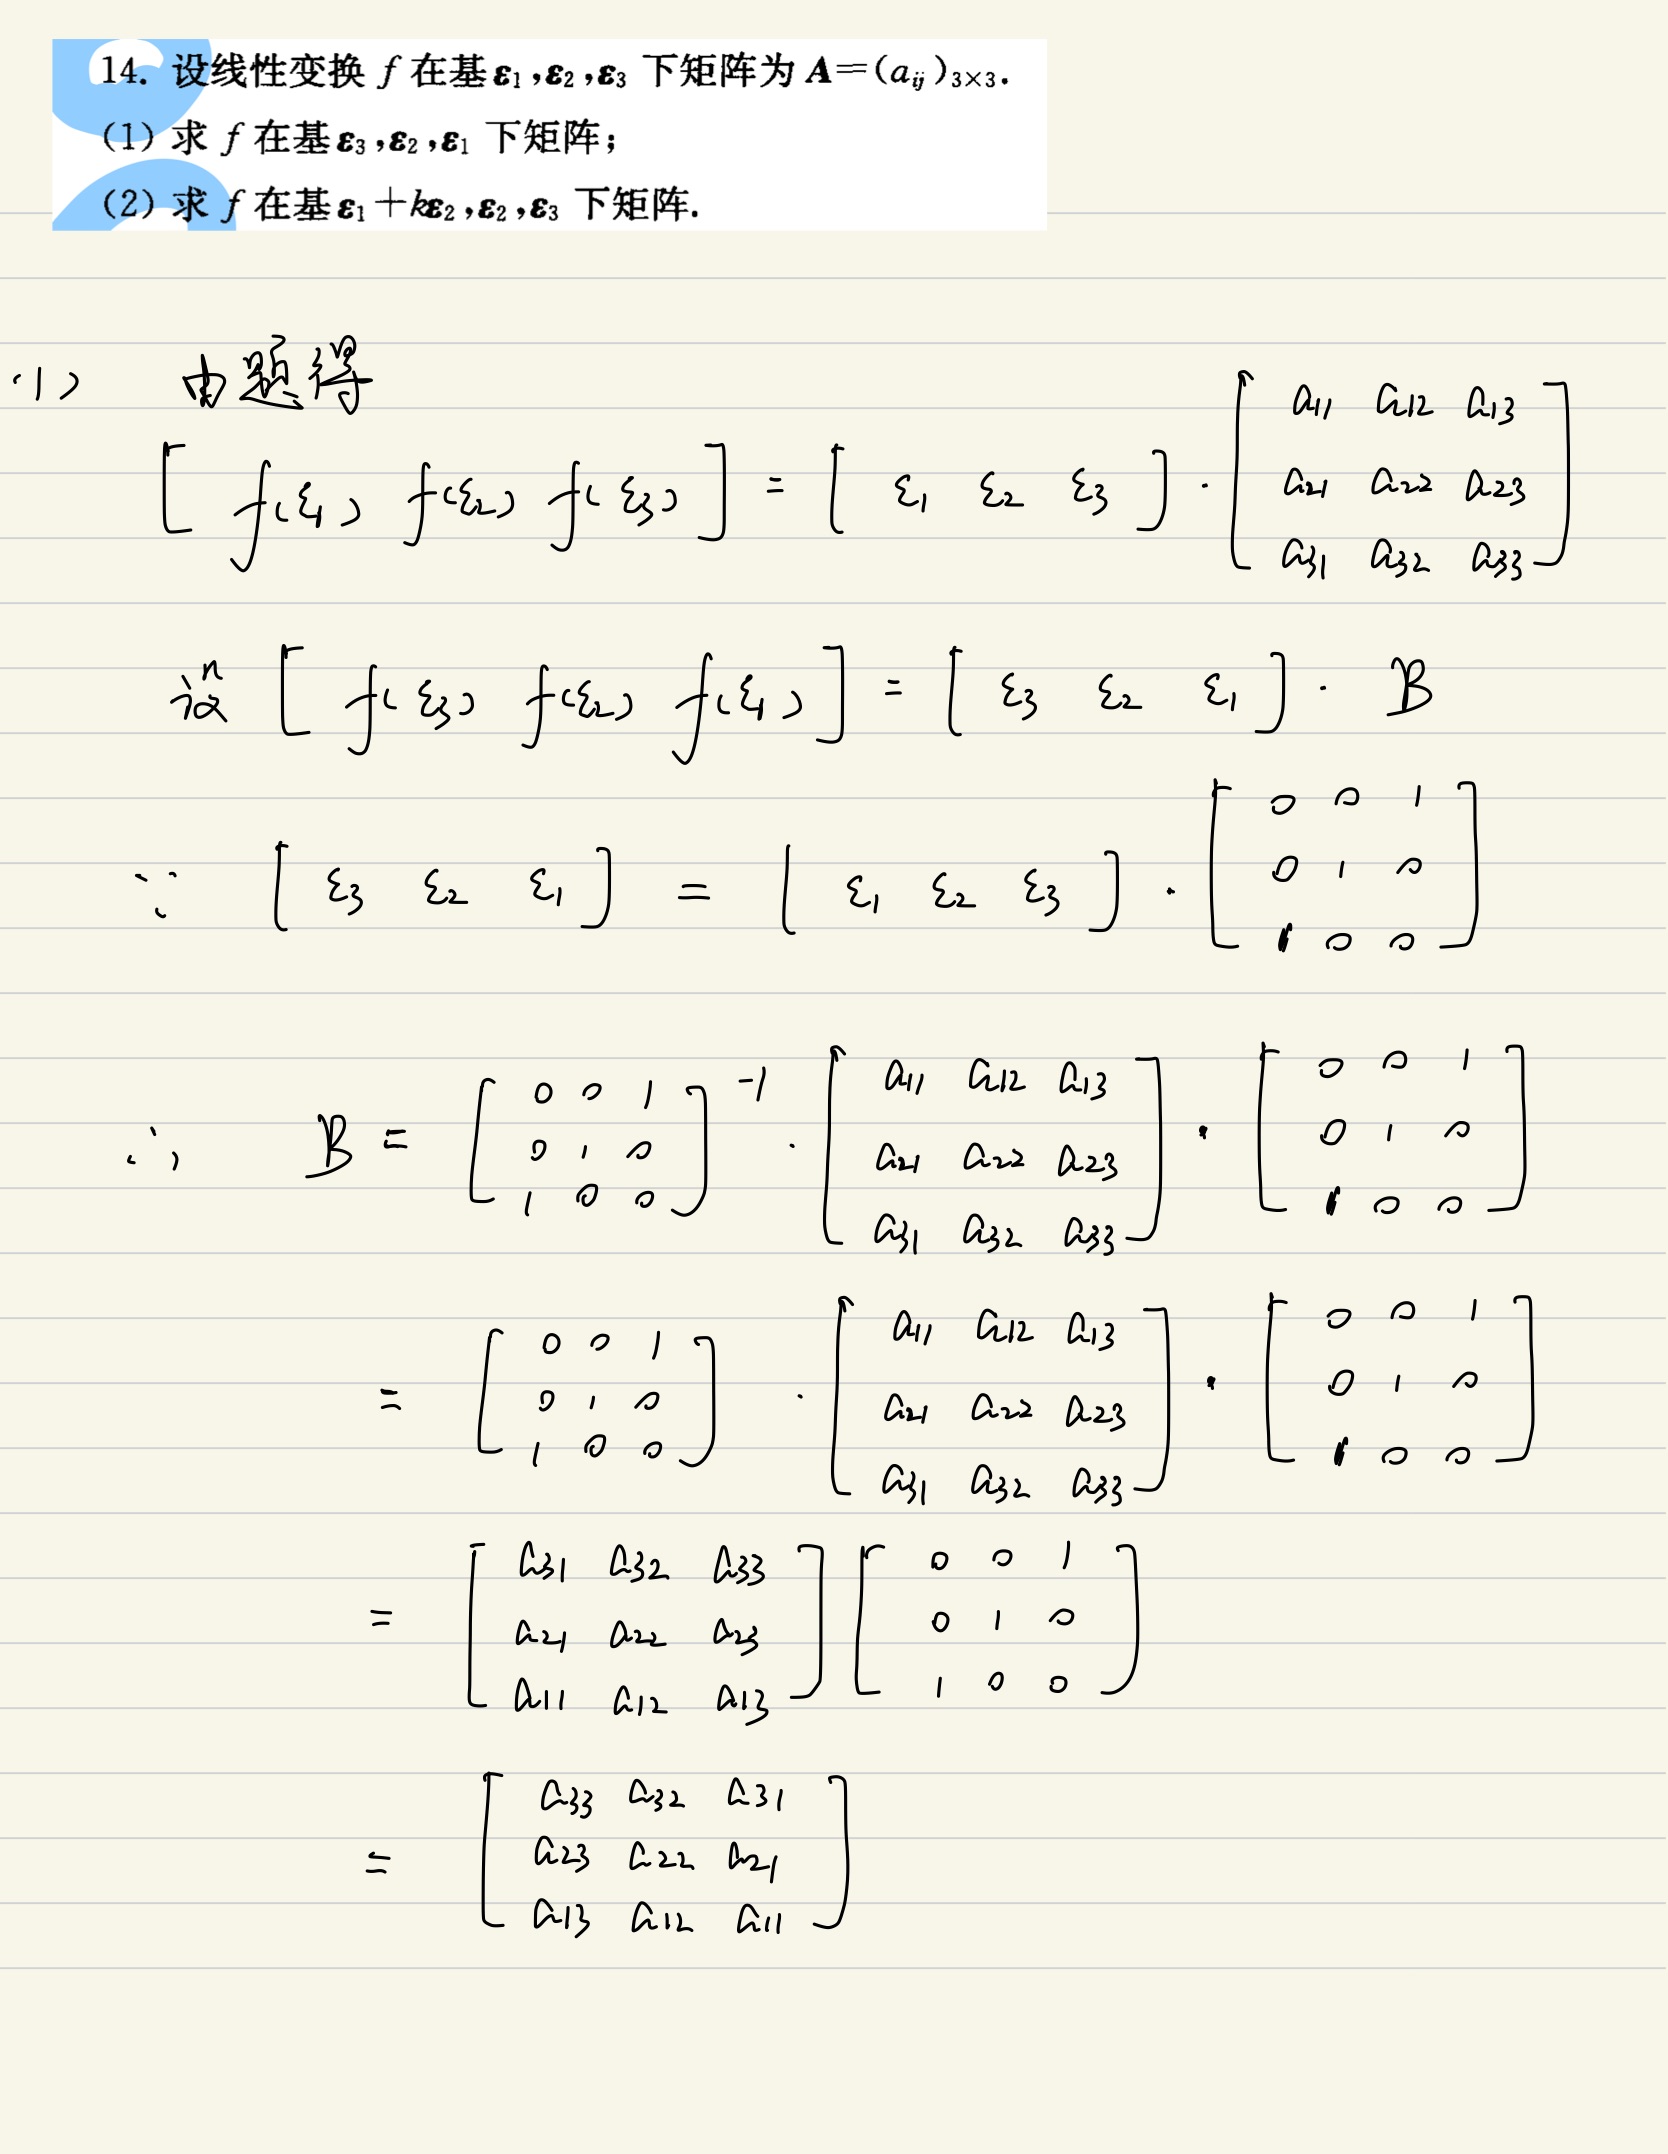 14. 设线性变换 f 在基ε₁,ε₂,ε₃ 下矩阵为 A=(aᵢⱼ)₃ₓ₃.
(1) 求 f 在基ε₃,ε₂,ε₁ 下矩阵;
(2) 求 f 在基ε₁+kε₂,ε₂,ε₃ 下矩阵.
(1) 由题得
[ f(ε₁) f(ε₂) f(ε₃) ] = [ ε₁ ε₂ ε₃ ] · [ a11 a12 a13
a21 a22 a23
a31 a32 a33 ]
设 [ f(ε₃) f(ε₂) f(ε₁) ] = [ ε₃ ε₂ ε₁ ] · B
∵ [ ε₃ ε₂ ε₁ ] = [ ε₁ ε₂ ε₃ ] · [ 0 0 1
0 1 0
1 0 0 ]
∴ B = [ 0 0 1
0 1 0
1 0 0 ]⁻¹ · [ a11 a12 a13
a21 a22 a23
a31 a32 a33 ] · [ 0 0 1
0 1 0
1 0 0 ]
= [ 0 0 1
0 1 0
1 0 0 ] · [ a11 a12 a13
a21 a22 a23
a31 a32 a33 ] · [ 0 0 1
0 1 0
1 0 0 ]
= [ a31 a32 a33
a21 a22 a23
a11 a12 a13 ] [ 0 0 1
0 1 0
1 0 0 ]
= [ a33 a32 a31
a23 a22 a21
a13 a12 a11 ]